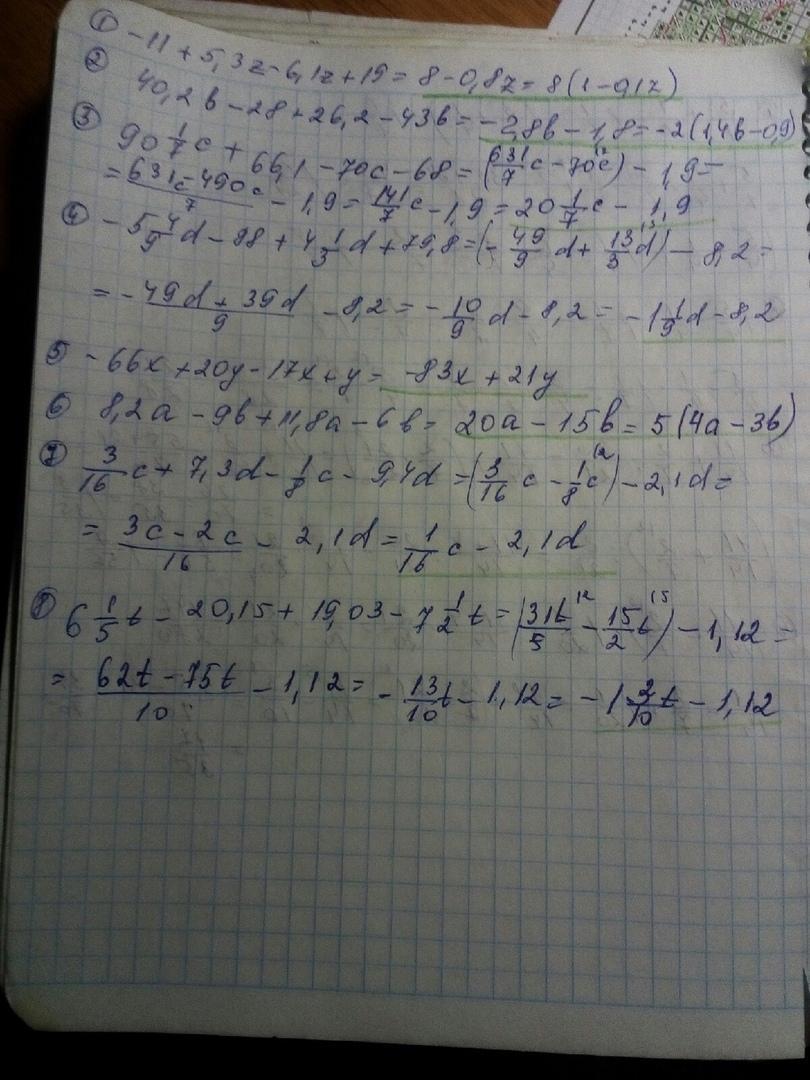 ① -11 + 5,3z - 6,1z + 19 = 8 - 0,8z = 8(1 - 0,1z)
② 40,2в - 28 + 26,2 - 43в = -2,8в - 1,8 = -2(1,4в - 0,9)
③ 90 1/7 c + 66,1 - 70c - 68 = (631/7 c - 70c) - 1,9 =
= (631c - 490c)/7 - 1,9 = 141/7 c - 1,9 = 20 1/7 c - 1,9
④ -5 4/9 d - 88 + 4 1/3 d + 79,8 = (-49/9 d + 13/3 d) - 8,2 =
= (-49d + 39d)/9 - 8,2 = -10/9 d - 8,2 = -1 1/9 d - 8,2
⑤ -66x + 20y - 17x + y = -83x + 21y
⑥ 8,2a - 9в + 11,8a - 6в = 20a - 15в = 5(4a - 3в)
⑦ 3/16 c + 7,3d - 1/8 c - 9,4d = (3/16 c - 1/8 c) - 2,1d =
= (3c - 2c)/16 - 2,1d = 1/16 c - 2,1d
⑧ 6 1/5 t - 20,15 + 19,03 - 7 1/2 t = (31t/5 - 15/2 t) - 1,12 =
= (62t - 75t)/10 - 1,12 = -13/10 t - 1,12 = -1 3/10 t - 1,12